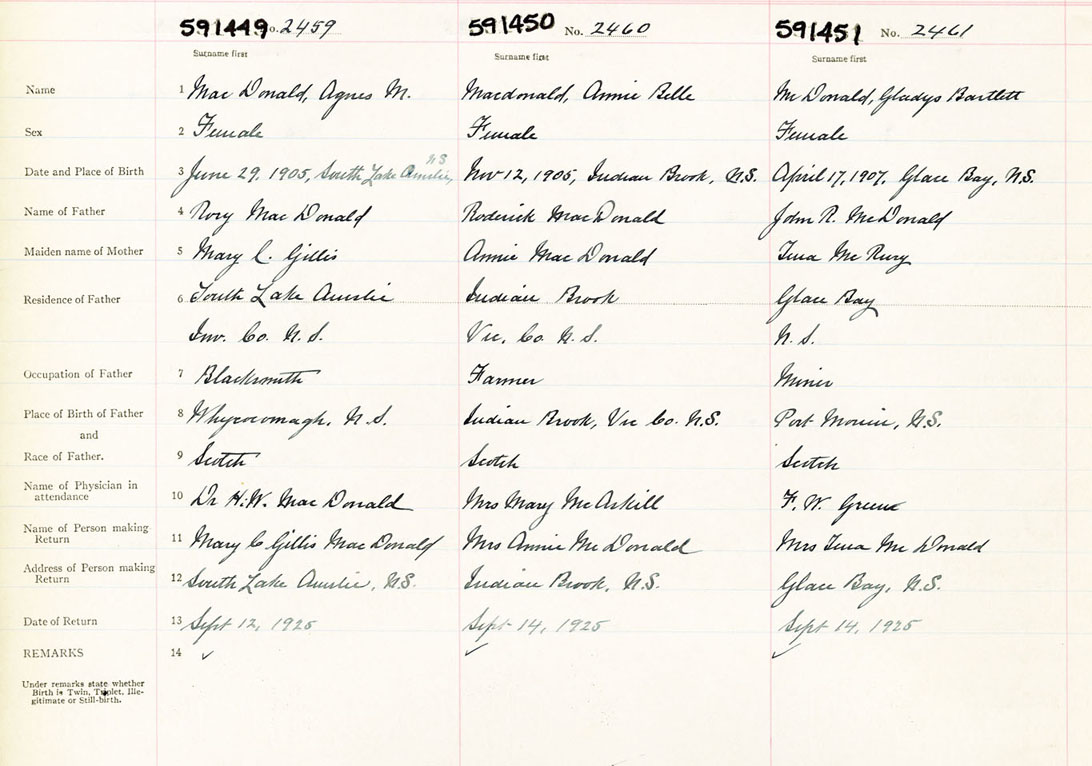 591449 No. 2459 591450 No. 2460 591451 No. 2461
Surname first Surname first Surname first
Name 1 Mac Donald, Agnes M. Macdonald, Annie Belle Mc Donald, Gladys Bartlett
Sex 2 Female Female Female
N.S.
Date and Place of Birth 3 June 29, 1905, South Lake Ainslie, Nov 12, 1905, Indian Brook, N.S. April 17, 1907, Glace Bay, N.S.
Name of Father 4 Rory Mac Donald Roderick MacDonald John R. McDonald
Maiden name of Mother 5 Mary C. Gillis Annie Mac Donald Tena Mc Rury
Residence of Father 6 South Lake Ainslie Indian Brook Glace Bay
Inv. Co. N.S. Vic. Co. N.S. N.S.
Occupation of Father 7 Blacksmith Farmer Miner
Place of Birth of Father 8 Whycocomagh, N.S. Indian Brook, Vic Co. N.S. Port Morien, N.S.
and
Race of Father. 9 Scotch Scotch Scotch
Name of Physician in
attendance 10 Dr H.W. Mac Donald Mrs Mary McAskill F. W. Green
Name of Person making
Return 11 Mary C Gillis Mac Donald Mrs Annie McDonald Mrs Tena Mc Donald
Address of Person making
Return 12 South Lake Ainslie, N.S. Indian Brook, N.S. Glace Bay, N.S.
Date of Return 13 Sept 12, 1925 Sept 14, 1925 Sept 14, 1925
REMARKS 14 ✓ ✓ ✓
Under remarks state whether
Birth is Twin, Triplet, Ille-
gitimate or Still-birth.